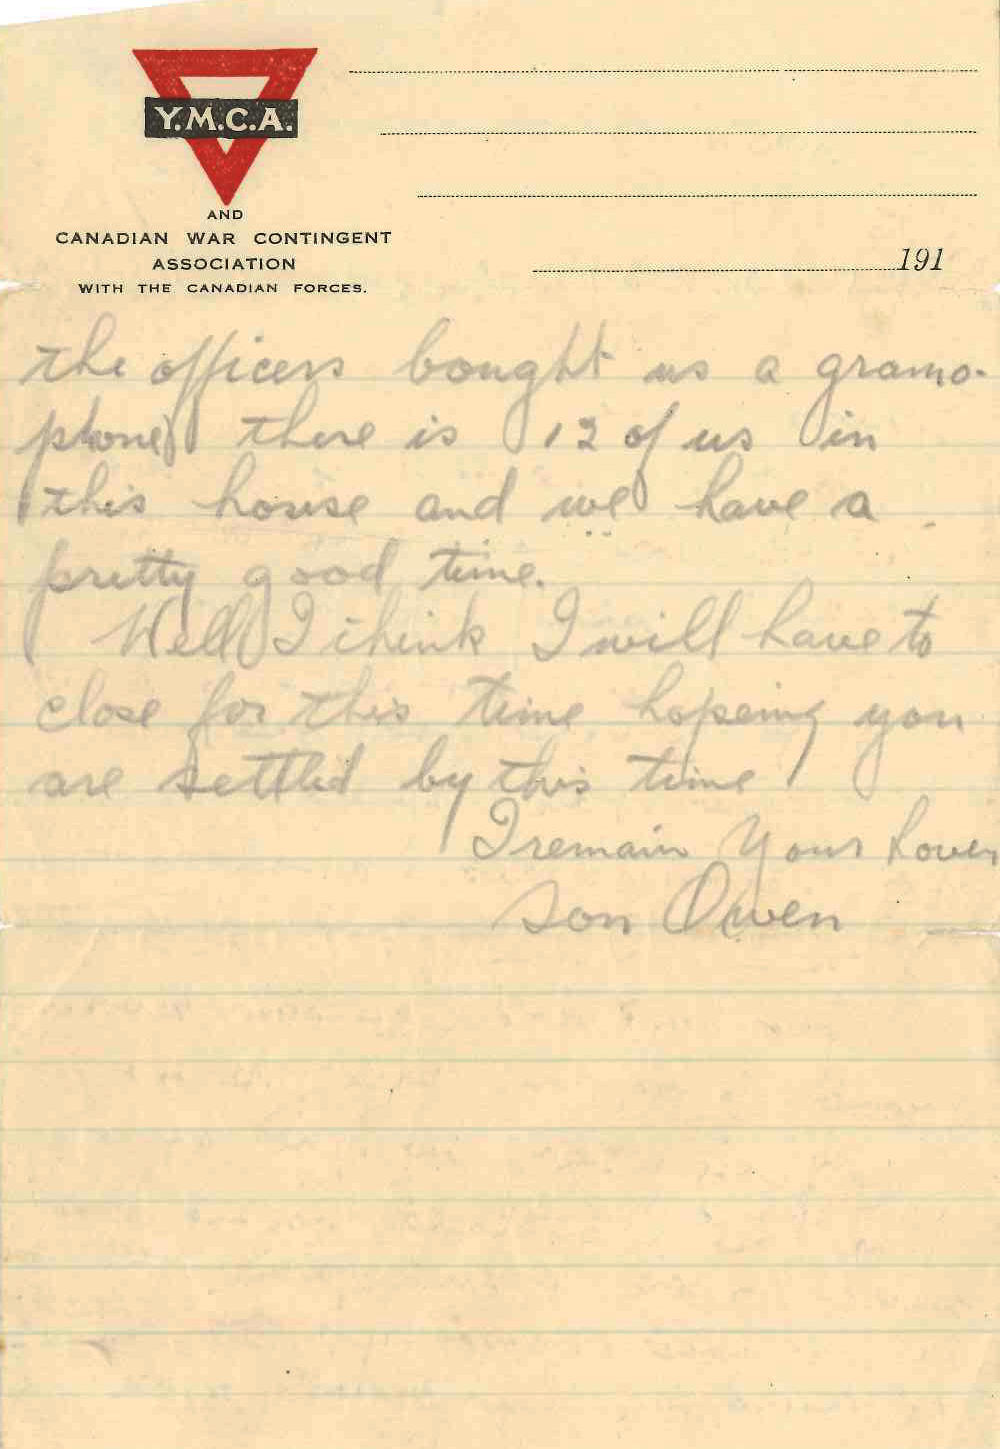 Y.M.C.A.
AND
CANADIAN WAR CONTINGENT
ASSOCIATION
WITH THE CANADIAN FORCES.
191
the officers bought us a gramo-
phone there is 12 of us in
this house and we have a
pretty good time.
Well I think I will have to
close for this time hopeing you
are settled by this time
I remain Your Loven
Son Owen